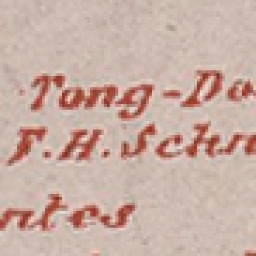 Tong-Do
F.H. Schn
ntes